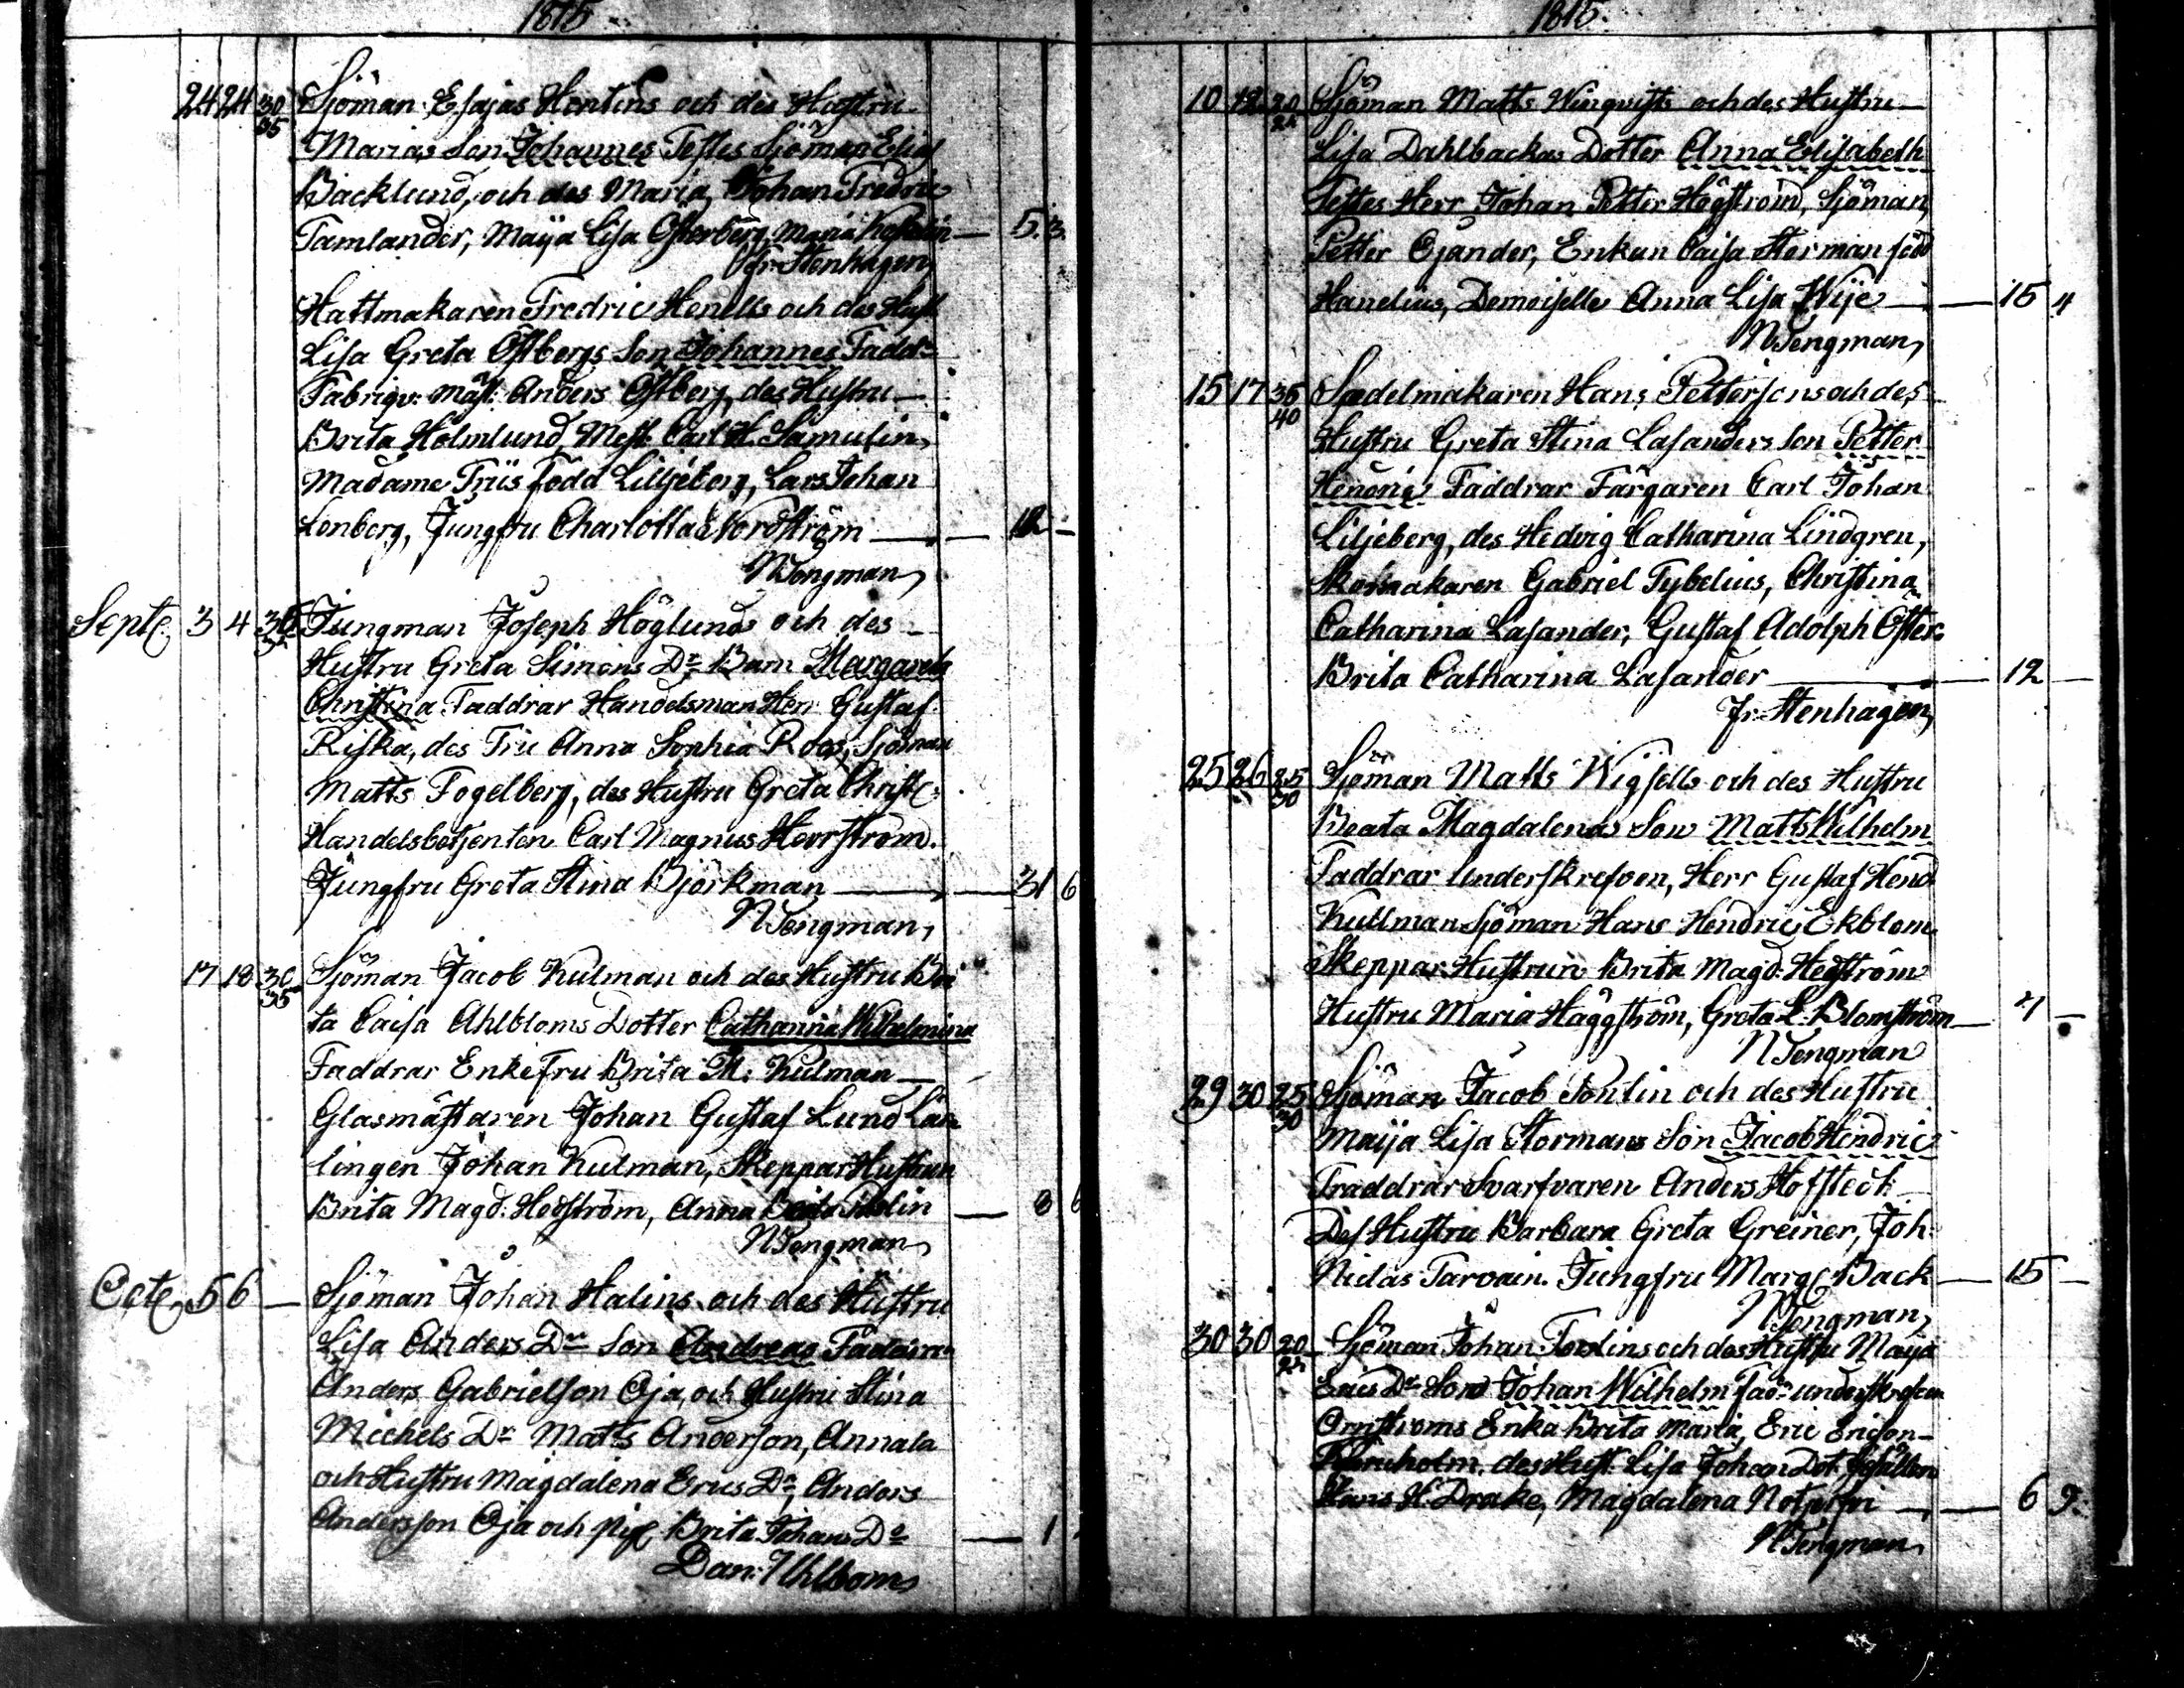 1815
24 24 30 35 Sjöman Esajas Hentins och des Hustru
Marias Son Johannes Testes Sjöman Elias
Backlund, och des Maria, Johan Fredric
Tamlander, Maija Lisa Österberg, Maria — 5. 3.
fr. Stenhagen
Hattmakaren Fredric Henells och des Hust
Lisa Greta Östbergs Son Johannes Fadd:
Fabriqv: mäst: Anders Östberg, des Hustru
Brita Holmlund, Mest: Carl H. Samulin,
Madame Friis född Liljeberg, Lars Johan
Lönberg, Jungfru Charlotta Nordström — 12 —
N Tengman
Septe. 3 4 30 35 Jungman Joseph Höglunds och des
Hustru Greta Simons Dr Barn Margareta
Christina Faddrar Handelsman Herr Gustaf
Riska, des Fru Anna Sophia Roos, Sjöman
Matts Fogelberg, des Hustru Greta Christ:
Handelsbetjenten Carl Magnus Herrström.
Jungfru Greta Stina Björkman — 31 6
N Tengman
17 18 30 35 Sjöman Jacob Kulman och des Hustru Bri
ta Caisa Ahlbloms Dotter Catharina Wilhelmina
Faddrar Enkefru Brita M: Kulman
Glasmästaren Johan Gustaf Lund Lär
lingen Johan Kulman, Skeppar Hustrun
Brita Magd: Hedström, Anna — 8
N Tengman
Octe. 5 6 — Sjöman Johan Halins och des Hustru
Lisa Anders Dr Son Andreas Faddrar
Anders Gabrielson Öja, och Hustru Stina
Michels Dr Matts Anderson, Annala
och Hustru Magdalena Erics Dr, Anders
Andersson Öja och pig: Brita Johans Dr — 1
Dan: Uhlbom
1815.
10 12 20 Sjöman Matts Winqvists och des Hustru
Lisa Dahlbackas Dotter Anna Elisabeth
Testes Herr Johan Petter Högström, Sjöman,
Petter Öjander, Enkan Caisa Storman född
Hanelius, Demoiselle Anna Lisa Wije — 15 4
N Tengman
15 17 35 40 Sadelmakaren Hans Pettersons och des
Hustru Greta Stina Lasanders Son Petter
Hendric Faddrar Färgaren Carl Johan
Liljeberg, des Hedvig Catharina Lindgren,
Skomakaren Gabriel Tybelius, Christina
Catharina Lasander, Gustaf Adolph Öster:
Brita Catharina Lasander — 12 —
fr. Stenhagen
25 26 25 30 Sjöman Matts Wigsells och des Hustru
Beata Magdalenas Son Matts Wilhelm
Faddrar Underskrefven, Herr Gustaf Hend
Kullman Sjöman Hans Hendric Ekblom
Skeppar Hustrun Brita Magd: Hedström
Hustru Maria Häggström, Greta L: Blomström —
N Tengman
29 30 25 30 Sjöman Jacob Ponlin och des Hustru
Maija Lisa Stormans Son Jacob Hendric
Fraddrar Svarfvaren Anders Hofstedt
Des Hustru Barbara Greta Greiner, Joh:
Niclas Tarvain. Jungfru Marg: Back — 15 —
N Tengman
30 30 20 Sjöman Johan Tordins och des Hustru Maija
Erics Dr Son Johan Wilhelm Fad: underskrefven
Enka Brita Maria, Eric Ericson
des Hust: Lisa Johan Dot.
Hans H. Drake, Magdalena — 6 9.
N Tengman